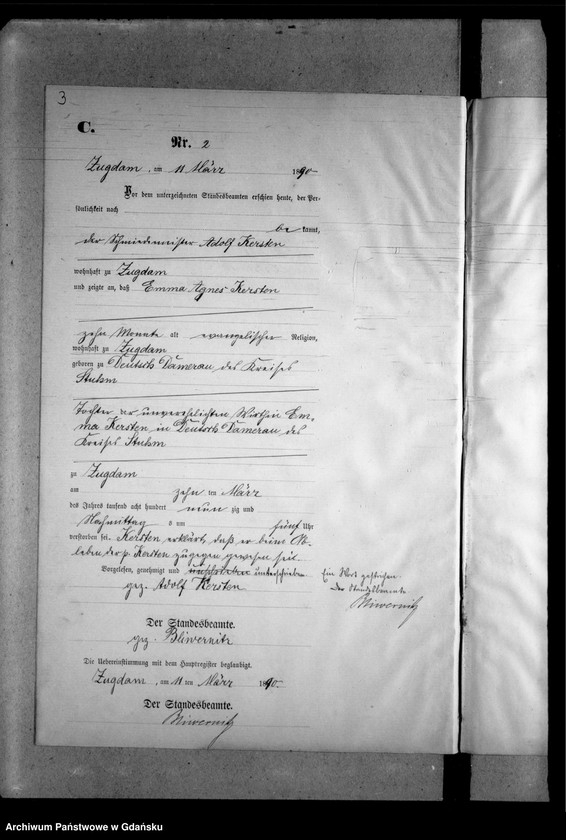 3
C.
Nr. 2
Zugdam, am 11 März 1890
Vor dem unterzeichneten Standesbeamten erschien heute, der Per-
sönlichkeit nach
be kannt,
der Schmiedemeister Adolf Kersten
wohnhaft zu Zugdam
und zeigte an, daß Emma Agnes Kersten
zehn Monate alt evangelischer Religion,
wohnhaft zu Zugdam
geboren zu Deutsch Damerau des Kreises
Stuhm
Tochter der unverehelichten Wirthin Em-
ma Kersten in Deutsch Damerau des
Kreises Stuhm
zu Zugdam
am zehn ten März
des Jahres tausend acht hundert neun zig und
Nachmittag s um fünf Uhr
verstorben sei. Kersten erklärt, daß er beim Ab-
leben der p. Kersten zugegen gewesen sei.
Vorgelesen, genehmigt und unterschrieben
gez. Adolf Kersten
Ein Wort gestrichen.
Der Standesbeamte
Bliwernitz
Der Standesbeamte.
gez. Bliwernitz
Die Uebereinstimmung mit dem Hauptregister beglaubigt.
Zugdam, am 11 ten März 1890
Der Standesbeamte.
Bliwernitz
Archiwum Państwowe w Gdańsku